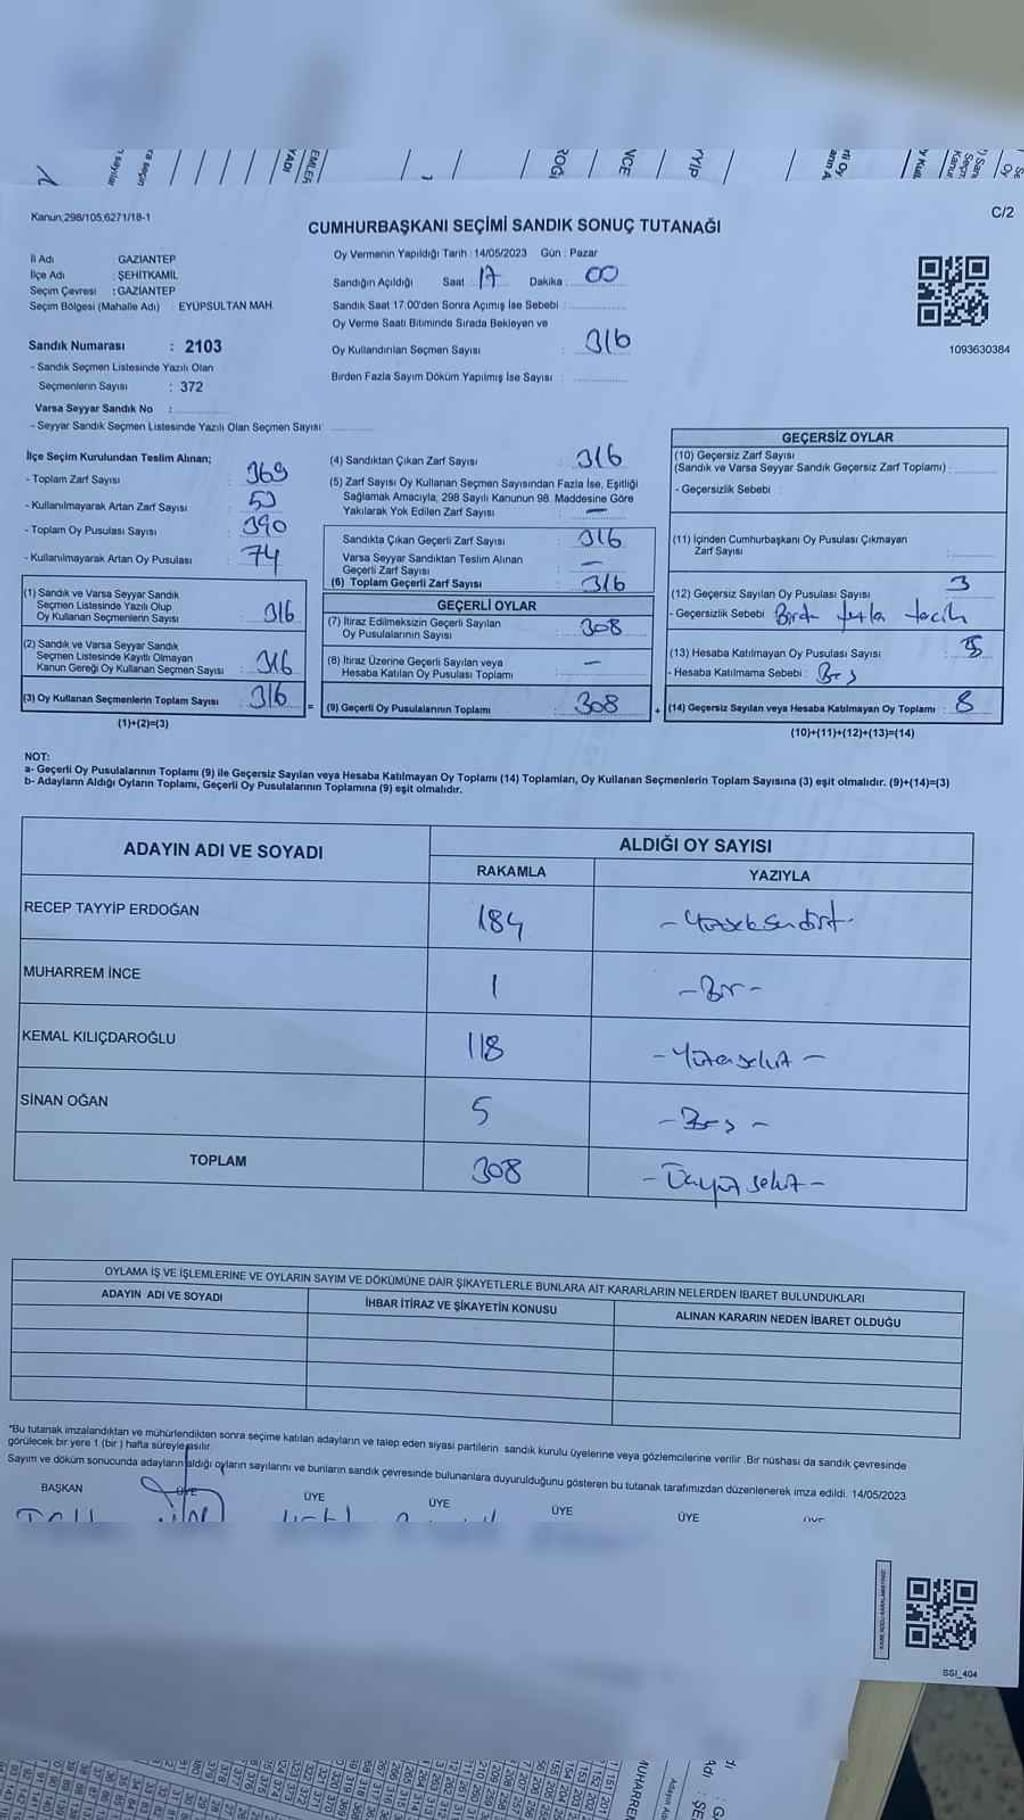 Kanun,298/105,6271/18-1
C/2
CUMHURBAŞKANI SEÇİMİ SANDIK SONUÇ TUTANAĞI
İl Adı GAZİANTEP
İlçe Adı : ŞEHİTKAMİL
Seçim Çevresi : GAZİANTEP
Seçim Bölgesi (Mahalle Adı) EYÜPSULTAN MAH.
Sandık Numarası : 2103
- Sandık Seçmen Listesinde Yazılı Olan
Seçmenlerin Sayısı : 372
Varsa Seyyar Sandık No :
- Seyyar Sandık Seçmen Listesinde Yazılı Olan Seçmen Sayısı
Oy Vermenin Yapıldığı Tarih : 14/05/2023 Gün : Pazar
Sandığın Açıldığı Saat 17 Dakika : 00
Sandık Saat 17:00'den Sonra Açılmış İse Sebebi :
Oy Verme Saati Bitiminde Sırada Bekleyen ve
Oy Kullandırılan Seçmen Sayısı : 316
Birden Fazla Sayım Döküm Yapılmış İse Sayısı :
1093630384
İlçe Seçim Kurulundan Teslim Alınan;
- Toplam Zarf Sayısı 369
- Kullanılmayarak Artan Zarf Sayısı 53
- Toplam Oy Pusulası Sayısı 390
- Kullanılmayarak Artan Oy Pusulası 74
(1) Sandık ve Varsa Seyyar Sandık
Seçmen Listesinde Yazılı Olup
Oy Kullanan Seçmenlerin Sayısı 316
(2) Sandık ve Varsa Seyyar Sandık
Seçmen Listesinde Kayıtlı Olmayan
Kanun Gereği Oy Kullanan Seçmen Sayısı 316
(3) Oy Kullanan Seçmenlerin Toplam Sayısı 316
(1)+(2)=(3)
(4) Sandıktan Çıkan Zarf Sayısı 316
(5) Zarf Sayısı Oy Kullanan Seçmen Sayısından Fazla İse, Eşitliği
Sağlamak Amacıyla, 298 Sayılı Kanunun 98. Maddesine Göre
Yakılarak Yok Edilen Zarf Sayısı : —
Sandıkta Çıkan Geçerli Zarf Sayısı : 316
Varsa Seyyar Sandıktan Teslim Alınan
Geçerli Zarf Sayısı : —
(6) Toplam Geçerli Zarf Sayısı : 316
GEÇERLİ OYLAR
(7) İtiraz Edilmeksizin Geçerli Sayılan
Oy Pusulalarının Sayısı : 308
(8) İtiraz Üzerine Geçerli Sayılan veya
Hesaba Katılan Oy Pusulası Toplamı : —
= (9) Geçerli Oy Pusulalarının Toplamı : 308
GEÇERSİZ OYLAR
(10) Geçersiz Zarf Sayısı
(Sandık ve Varsa Seyyar Sandık Geçersiz Zarf Toplamı) :
- Geçersizlik Sebebi :
(11) İçinden Cumhurbaşkanı Oy Pusulası Çıkmayan
Zarf Sayısı :
(12) Geçersiz Sayılan Oy Pusulası Sayısı 3
- Geçersizlik Sebebi : Birden fazla tercih
(13) Hesaba Katılmayan Oy Pusulası Sayısı : 5
- Hesaba Katılmama Sebebi : Boş
+ (14) Geçersiz Sayılan veya Hesaba Katılmayan Oy Toplamı : 8
(10)+(11)+(12)+(13)=(14)
NOT:
a- Geçerli Oy Pusulalarının Toplamı (9) ile Geçersiz Sayılan veya Hesaba Katılmayan Oy Toplamı (14) Toplamları, Oy Kullanan Seçmenlerin Toplam Sayısına (3) eşit olmalıdır. (9)+(14)=(3)
b- Adayların Aldığı Oyların Toplamı, Geçerli Oy Pusulalarının Toplamına (9) eşit olmalıdır.
ADAYIN ADI VE SOYADI
ALDIĞI OY SAYISI
RAKAMLA YAZIYLA
RECEP TAYYİP ERDOĞAN 184 - Yüzseksendört -
MUHARREM İNCE 1 - Bir -
KEMAL KILIÇDAROĞLU 118 - Yüzonsekiz -
SİNAN OĞAN 5 - Beş -
TOPLAM 308 - Üçyüzsekiz -
OYLAMA İŞ VE İŞLEMLERİNE VE OYLARIN SAYIM VE DÖKÜMÜNE DAİR ŞİKAYETLERLE BUNLARA AİT KARARLARIN NELERDEN İBARET BULUNDUKLARI
ADAYIN ADI VE SOYADI İHBAR İTİRAZ VE ŞİKAYETİN KONUSU ALINAN KARARIN NEDEN İBARET OLDUĞU
*Bu tutanak imzalandıktan ve mühürlendikten sonra seçime katılan adayların ve talep eden siyasi partilerin sandık kurulu üyelerine veya gözlemcilerine verilir. Bir nüshası da sandık çevresinde
görülecek bir yere 1 (bir ) hafta süreyle asılır.
Sayım ve döküm sonucunda adayların aldığı oyların sayılarını ve bunların sandık çevresinde bulunanlara duyurulduğunu gösteren bu tutanak tarafımızdan düzenlenerek imza edildi. 14/05/2023
BAŞKAN ÜYE ÜYE ÜYE ÜYE ÜYE ÜYE
SSI_404